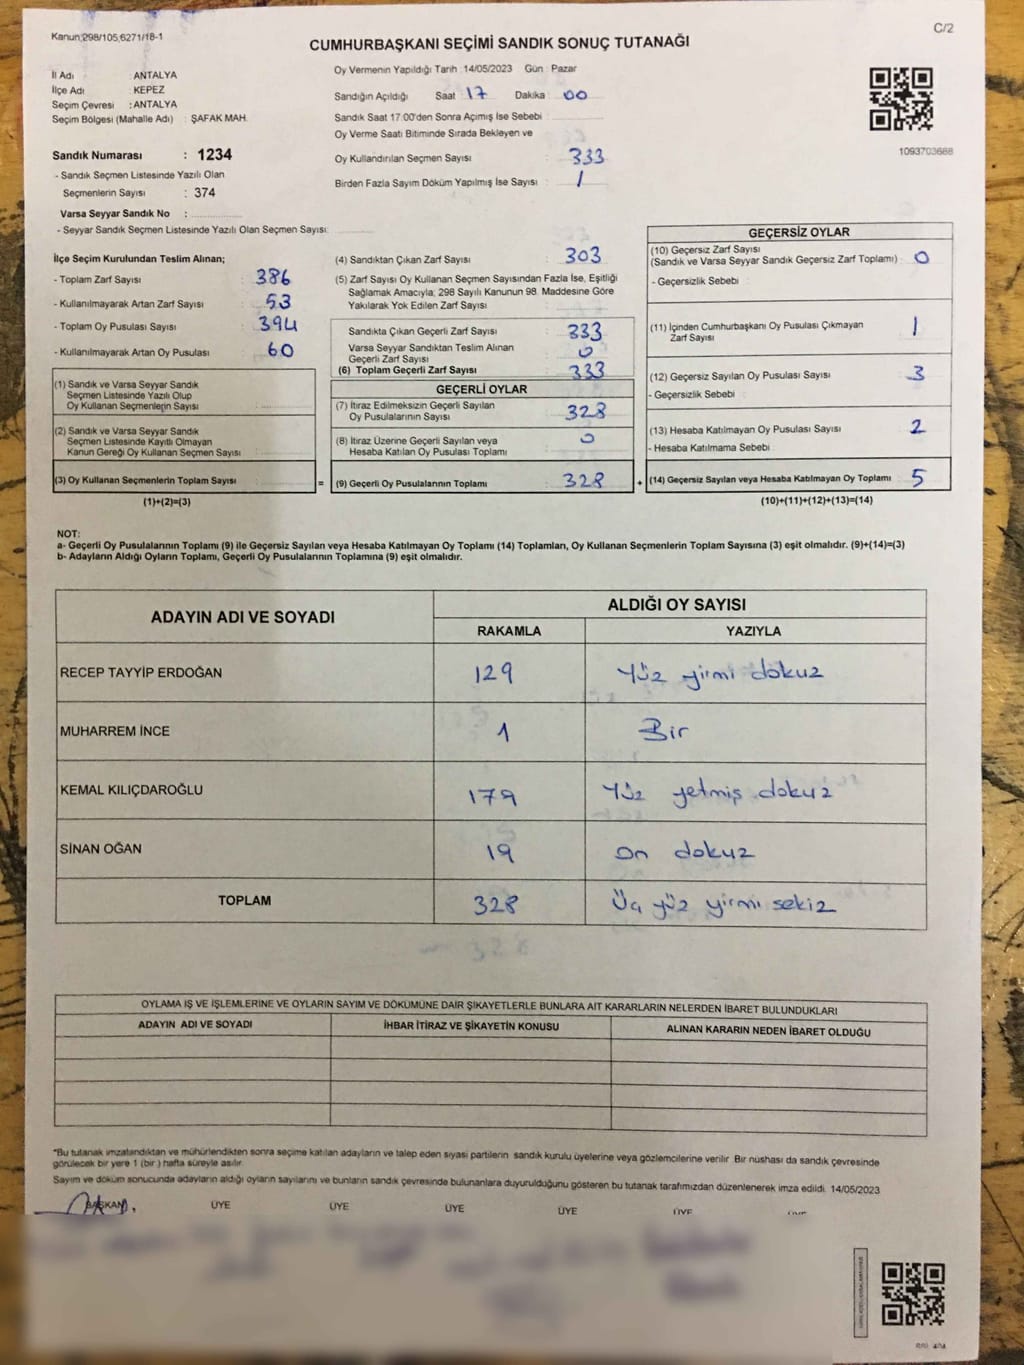 Kanun;298/105,6271/18-1
C/2
CUMHURBAŞKANI SEÇİMİ SANDIK SONUÇ TUTANAĞI
İl Adı : ANTALYA
İlçe Adı : KEPEZ
Seçim Çevresi : ANTALYA
Seçim Bölgesi (Mahalle Adı) : ŞAFAK MAH.
Sandık Numarası : 1234
- Sandık Seçmen Listesinde Yazılı Olan
Seçmenlerin Sayısı : 374
Varsa Seyyar Sandık No :
- Seyyar Sandık Seçmen Listesinde Yazılı Olan Seçmen Sayısı:
Oy Vermenin Yapıldığı Tarih :14/05/2023 Gün : Pazar
Sandığın Açıldığı Saat 17 Dakika : 00
Sandık Saat 17:00'den Sonra Açımış İse Sebebi :
Oy Verme Saati Bitiminde Sırada Bekleyen ve
Oy Kullandırılan Seçmen Sayısı : 333
Birden Fazla Sayım Döküm Yapılmış İse Sayısı : 1
1093703668
İlçe Seçim Kurulundan Teslim Alınan;
- Toplam Zarf Sayısı : 386
- Kullanılmayarak Artan Zarf Sayısı : 53
- Toplam Oy Pusulası Sayısı : 394
- Kullanılmayarak Artan Oy Pusulası : 60
(1) Sandık ve Varsa Seyyar Sandık
Seçmen Listesinde Yazılı Olup
Oy Kullanan Seçmenlerin Sayısı :
(2) Sandık ve Varsa Seyyar Sandık
Seçmen Listesinde Kayıtlı Olmayan
Kanun Gereği Oy Kullanan Seçmen Sayısı :
(3) Oy Kullanan Seçmenlerin Toplam Sayısı :
(1)+(2)=(3)
(4) Sandıktan Çıkan Zarf Sayısı : 303
(5) Zarf Sayısı Oy Kullanan Seçmen Sayısından Fazla İse, Eşitliği
Sağlamak Amacıyla; 298 Sayılı Kanunun 98. Maddesine Göre
Yakılarak Yok Edilen Zarf Sayısı :
Sandıkta Çıkan Geçerli Zarf Sayısı : 333
Varsa Seyyar Sandıktan Teslim Alınan
Geçerli Zarf Sayısı : 0
(6) Toplam Geçerli Zarf Sayısı : 333
GEÇERLİ OYLAR
(7) İtiraz Edilmeksizin Geçerli Sayılan
Oy Pusulalarının Sayısı : 328
(8) İtiraz Üzerine Geçerli Sayılan veya
Hesaba Katılan Oy Pusulası Toplamı : 0
= (9) Geçerli Oy Pusulalarının Toplamı : 328 +
GEÇERSİZ OYLAR
(10) Geçersiz Zarf Sayısı
(Sandık ve Varsa Seyyar Sandık Geçersiz Zarf Toplamı) : 0
- Geçersizlik Sebebi :
(11) İçinden Cumhurbaşkanı Oy Pusulası Çıkmayan
Zarf Sayısı : 1
(12) Geçersiz Sayılan Oy Pusulası Sayısı : 3
- Geçersizlik Sebebi :
(13) Hesaba Katılmayan Oy Pusulası Sayısı : 2
- Hesaba Katılmama Sebebi :
(14) Geçersiz Sayılan veya Hesaba Katılmayan Oy Toplamı : 5
(10)+(11)+(12)+(13)=(14)
NOT:
a- Geçerli Oy Pusulalarının Toplamı (9) ile Geçersiz Sayılan veya Hesaba Katılmayan Oy Toplamı (14) Toplamları, Oy Kullanan Seçmenlerin Toplam Sayısına (3) eşit olmalıdır. (9)+(14)=(3)
b- Adayların Aldığı Oyların Toplamı, Geçerli Oy Pusulalarının Toplamına (9) eşit olmalıdır.
ADAYIN ADI VE SOYADI ALDIĞI OY SAYISI
RAKAMLA YAZIYLA
RECEP TAYYİP ERDOĞAN 129 Yüz yirmi dokuz
MUHARREM İNCE 1 Bir
KEMAL KILIÇDAROĞLU 179 Yüz yetmiş dokuz
SİNAN OĞAN 19 On dokuz
TOPLAM 328 Üç yüz yirmi sekiz
OYLAMA İŞ VE İŞLEMLERİNE VE OYLARIN SAYIM VE DÖKÜMÜNE DAİR ŞİKAYETLERLE BUNLARA AİT KARARLARIN NELERDEN İBARET BULUNDUKLARI
ADAYIN ADI VE SOYADI İHBAR İTİRAZ VE ŞİKAYETİN KONUSU ALINAN KARARIN NEDEN İBARET OLDUĞU
*Bu tutanak imzalandıktan ve mühürlendikten sonra seçime katılan adayların ve talep eden siyasi partilerin sandık kurulu üyelerine veya gözlemcilerine verilir. Bir nüshası da sandık çevresinde
görülecek bir yere 1 (bir ) hafta süreyle asılır.
Sayım ve döküm sonucunda adayların aldığı oyların sayılarını ve bunların sandık çevresinde bulunanlara duyurulduğunu gösteren bu tutanak tarafımızdan düzenlenerek imza edildi. 14/05/2023
BAŞKAN ÜYE ÜYE ÜYE ÜYE ÜYE